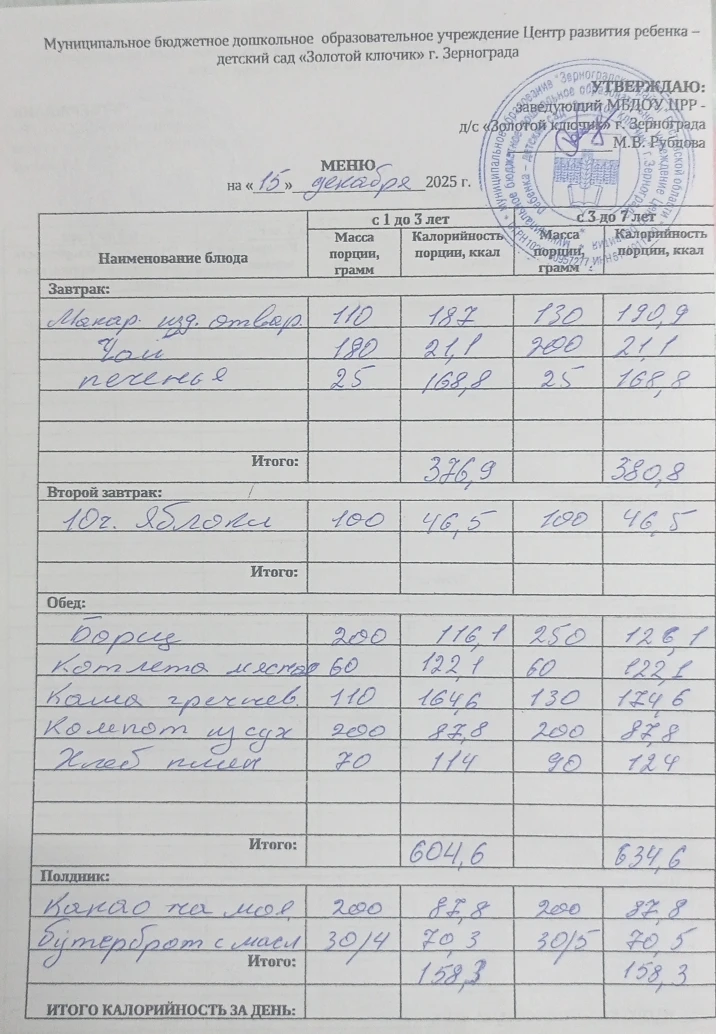 Муниципальное бюджетное дошкольное образовательное учреждение Центр развития ребенка –
детский сад «Золотой ключик» г. Зернограда
УТВЕРЖДАЮ:
заведующий МБДОУ ЦРР -
д/с «Золотой ключик» г. Зернограда
М.В. Рубцова
МЕНЮ
на « 15 » декабря 2025 г.
Наименование блюда
с 1 до 3 лет с 3 до 7 лет
Масса порции, грамм Калорийность порции, ккал Масса порции, грамм Калорийность порции, ккал
Завтрак:
Макар. изд. отвар. 110 187 130 190,9
Чай 180 21,1 200 21,1
печенья 25 168,8 25 168,8
Итого: 376,9 380,8
Второй завтрак:
10ч. Яблоки 100 46,5 100 46,5
Итого:
Обед:
Борщ 200 116,1 250 126,1
Котлета мясная 60 122,1 60 122,1
Каша гречнев. 110 164,6 130 174,6
Компот из сух 200 87,8 200 87,8
Хлеб пшен 70 114 90 124
Итого: 604,6 634,6
Полдник:
Какао на мол 200 87,8 200 87,8
бутерброт с масл 30/4 70,3 30/5 70,5
Итого: 158,3 158,3
ИТОГО КАЛОРИЙНОСТЬ ЗА ДЕНЬ: